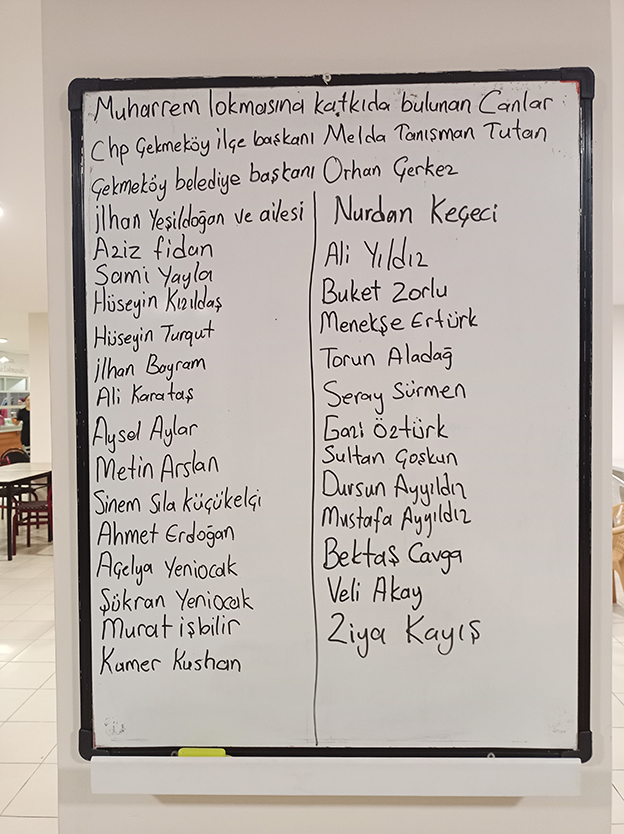 Muharrem lokmasına katkıda bulunan Canlar
Chp Çekmeköy ilçe başkanı Melda Tanışman Tutan
Çekmeköy belediye başkanı Orhan Çerkez
İlhan Yeşildoğan ve ailesi
Aziz fidan
Sami Yayla
Hüseyin Kızıldaş
Hüseyin Turgut
İlhan Bayram
Ali Karataş
Aysel Aylar
Metin Arslan
Sinem Sıla Küçükelçi
Ahmet Erdoğan
Açelya Yeniocak
Şükran Yeniocak
Murat işbilir
Kamer Kushan
Nurdan Keçeci
Ali Yıldız
Buket Zorlu
Menekşe Ertürk
Torun Aladağ
Seray Sürmen
Gazi Öztürk
Sultan Çoşkun
Dursun Ayyıldın
Mustafa Ayyıldız
Bektaş Cavga
Veli Akay
Ziya Kayış